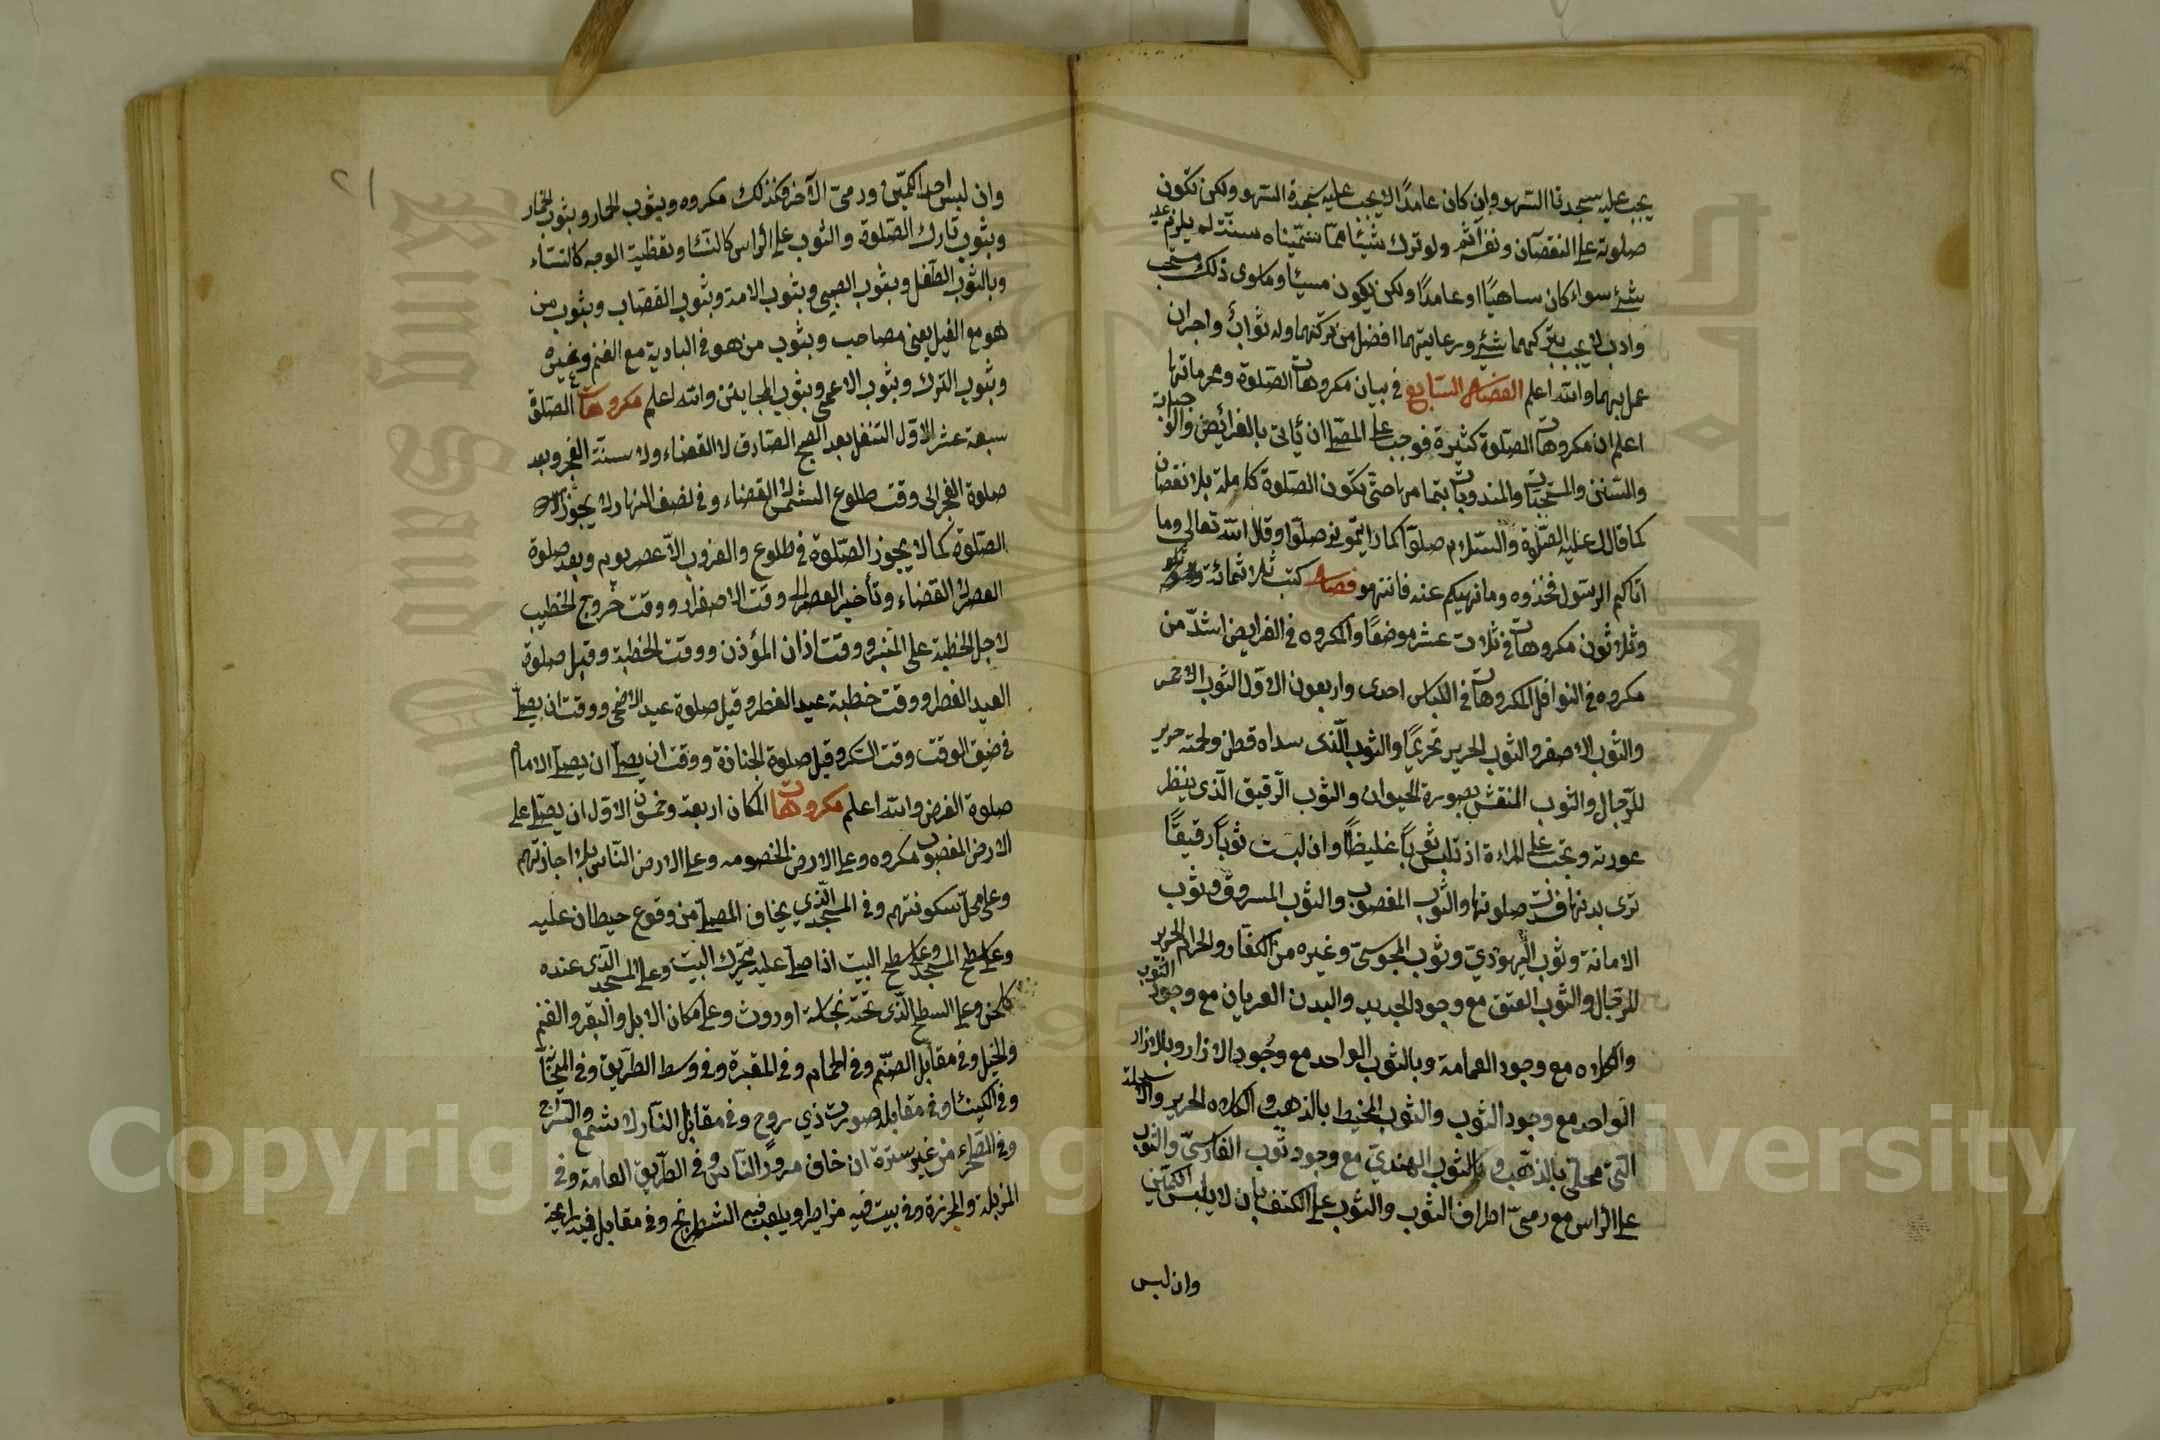 يجب عليه سجدتا السهو وان كان عامدًا لا يجب عليه سجدة السهو ولكن تكون
صلوته على النقصان ونفسه آثم ولو ترك شيئا مما سمّيناه سنة لم يلزم عليه
شئ سواء كان ساهيًا او عامدًا ولكن يكون مسيئا وما سوى ذلك مستحب
وادب لا يجب بتركهما شئ ورعايتهما افضل من تركهما وله ثواب واجران
عمل بهما والله اعلم الفصل السابع في بيان مكروهات الصلوة ومحرماتها
اعلم ان مكروهات الصلوة كثيرة فوجب على المصلي ان يأتي بالفرائض والواجبات
والسنن والمستحبات والمندوبات بتمامها حتى تكون الصلوة كاملة بلا نقصان
كما قال عليه الصلوة والسلام صلوا كما رايتموني صلوا وقال الله تعالى وما
اتاكم الرسول فخذوه وما نهيكم عنه فانتهوا فصل كتب ثلاثمائة
وثلاثون مكروهات في ثلاث عشر موضعًا والمكروه في الفرايض اشدّ من
مكروه في النوافل المكروهات في اللباس احدى واربعون الاول الثوب الاحمر
والثوب الاصفر والثوب الحرير تحريمًا والثوب الذي سداه قطن ولحمته حرير
للرجال والثوب المنقش بصورة الحيوان والثوب الرقيق الذي ينظر
عورته ويجب على المراءة اذ تلبس ثوبًا غليظًا وان لبست ثوبًا رقيقًا
ترى بدنها فسدت صلوتها والثوب المغصوب والثوب المسروق وثوب
الامانة وثوب اليهودي وثوب المجوسي وغيره من الكفار والحرام الحرير
للرجال والثوب العتق مع وجود الجديد والبدن العريان مع وجود الثوب
والكلاه مع وجود العمامة وبالثوب الواحد مع وجود الازار وبالازار
الواحد مع وجود الثوب والثوب المخيط بالذهب والكلاه الحرير والاسلحة
التي محلى بالذهب وبالثوب الهندي مع وجود ثوب الفارسي والثوب
على الراس مع رمي اطراف الثوب والثوب على الكتف بان لا يلبس الكمين
وان لبس
وان لبس احد الكمين ورمى الآخر فكذلك مكروه وبثوب الحمار وبثوب الخمار
وبثوب تارك الصلوة والثوب على الراس كالنساء وتغطية الوجه كالنساء
وبالثوب الطفل وبثوب الصبي وبثوب الامة وبثوب القصاب وبثوب من
هو مع الفيل يعني مصاحب وبثوب من هو في البادية مع الغنم وغيره
وبثوب الترك وبثوب الاعمى وبثوب المجانين والله اعلم مكروهات الصلوة
سبعة عشر الاول التنفل بعد الصبح الصادق لا القضاء ولا سنة الفجر وبعد
صلوة الفجر الى وقت طلوع الشمس لا القضاء وفي نصف النهار لا يجوز
الصلوة كما لا يجوز الصلوة في طلوع والغروب الا عصر يومه وبعد صلوة
العصر لا القضاء وتأخير العصر الى وقت الاصفرار ووقت خروج الخطيب
لاجل الخطبة على المنبر ووقت اذان المؤذن ووقت الخطبة وقبل صلوة
العيد الفطر ووقت خطبة عيد الفطر وقبل صلوة عيد الاضحى ووقت ان يصلي
في ضيق الوقت وقت السكر وقبل صلوة الجنازة ووقت ان يصلي ان يصلي الامام
صلوة الفرض والله اعلم مكروهات المكان اربعة وخمسون الاول ان يصلي على
الارض المغصوب مكروه وعلى الارض الخصومه وعلى الارض الناس بلا اجازتهم
وعلى محل سكونتهم وفي المسجد الذي يخاف المصلي من وقوع حيطان عليه
وعلى سطح المسجد وعلى سطح البيت اذا صلى عليه يتحرك البيت وعلى المسجد الذي عنده
كلخن وعلى السطح الذي تحته نجاسة او روث وعلى مكان الابل والبقر والغنم
والخيل وفي مقابل الصنم وفي الحمام وفي المقبرة وفي وسط الطريق وفي
وفي الكنيسا وفي مقابله صورت ذي روح وفي مقابل النار لا شمع والسراج
وفي الصحراء من غير سترة ان خاف مرور الناس وفي الطريق العامة وفي
المزبلة والمجزرة وفي بيت فيه مزامير او يلعب فيه الشطرنج وفي مقابل
Copyright © King Saud University
1957